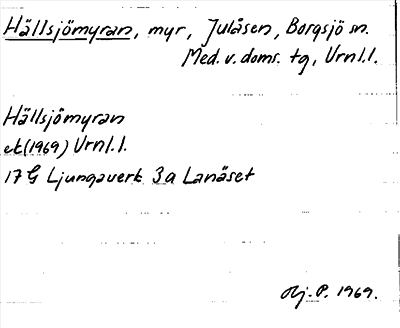 Hällsjömyran, myr, Julåsen, Borgsjö sn.
Med. v. doms. tg, Vrnl.l.
Hällsjömyran
ek (1969) Vrnl.l.
17 G Ljungaverk 3a Lanäset
Obj. P. 1969.